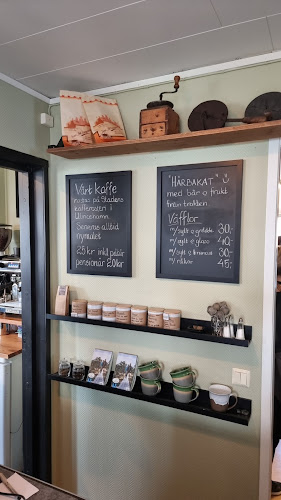 Vårt kaffe
rostas på Gladers
kafferosteri i
Ulricehamn.
Serveras alltid
nymalet
25 kr inkl påtår
pensionär 20 kr
"HÄRBAKAT"
med bär o frukt
från trakten
Våfflor
m/sylt o grädde 30:-
m/sylt o glass 40:-
m/sylt o 30:-
45:-